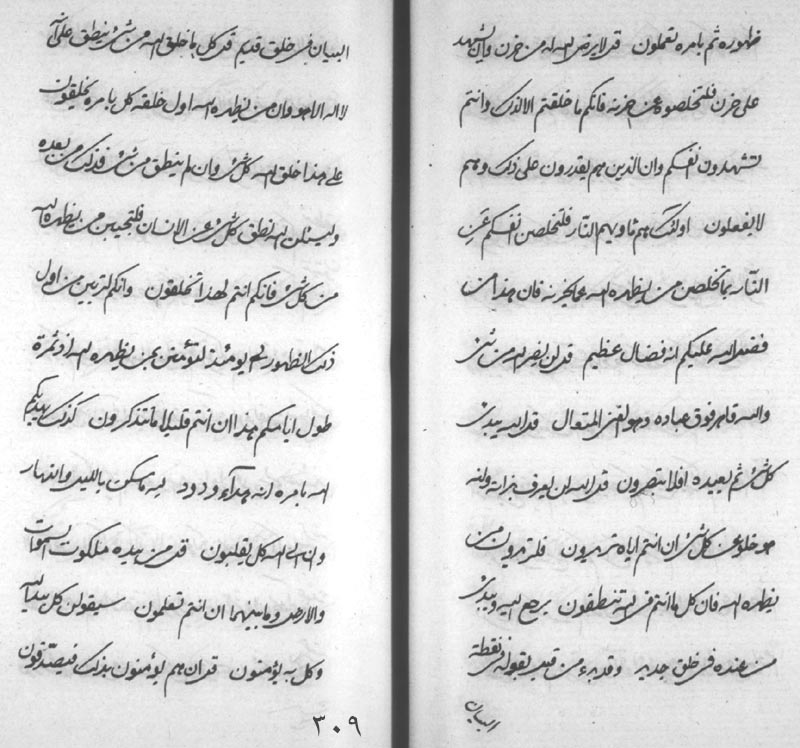 ظهوره ثم بامره تعملون قل لا يرض الله من حزن وان يشهد
على حزن فلتخلصوه عن حزنه فانكم ما خلقتم الا لذلك وانتم
تشهدون انفسكم وان الذين هم يقدرون على ذلك وهم
لا يفعلون اولئك هم ماويهم النار فلتخلصن انفسكم عن
النار بما تخلصن من يظهره الله عما يحزنه فان هذا من
فضل الله عليكم انه فضال عظيم قل لن يفر الله من شئ
والله قاهر فوق عباده وهو الغني المتعال قل الله يبدئ
كل شئ ثم يعيده افلا تبصرون قل الله لن يعرف بذاته وانه
هو خلو عن كل شئ ان انتم اياه تريدون فلتريدون من
يظهره الله فان كل ما انتم في الله تنطقون يرجع اليه ويبدئ
من عنده في خلق جديد وقد بدء من قبل بقوله في نقطة
البيان
البيان في خلق قديم قل كل ما خلق الله من شئ ينطق على انه
لا اله الا هو وان من يظهره الله اول خلقه كل بامره يخلقون
على هذا خلق الله كل شئ وان لم ينطق من شئ فذلك من بعده
وليسئلن الله نطق كل شئ عن الانسان فلتجيبن من يظهره الله
من كل شئ فانكم انتم لهذا تخلقون وانكم لتربين من اول
ذلك الظهور الى يومئذ لتؤمنن بمن يظهره الله اذ ثمرة
طول ايامكم هذا ان انتم قليلا ما تتذكرون كذلك يهديكم
الله بامره انه هداء ودود لله ما سكن بالليل والنهار
وان الى الله كل يقلبون قل من بيده ملكوت السموات
والارض وما بينهما ان انتم تعلمون سيقولن كل بيد الله
وكل به يؤمنون قل ان هم يؤمنون بذلك فيصدقون
٣٠٩